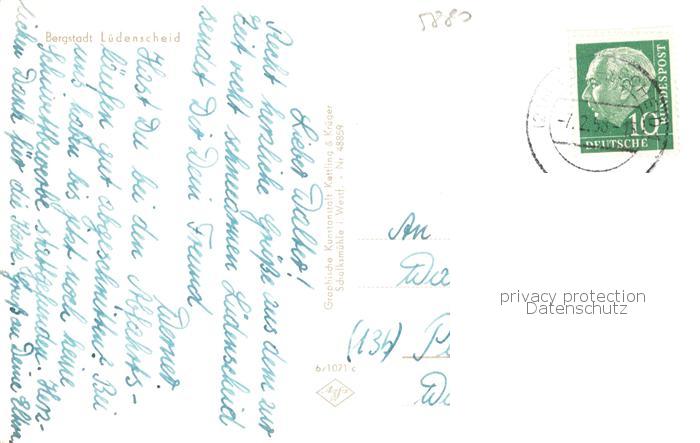 5880
Bergstadt Lüdenscheid
Lieber Walter!
Recht herzliche Grüße aus dem zur
Zeit recht schneearmen Lüdenscheid
sendet Dir Dein Freund
Werner
Hast Du bei den Abfahrts-
läufen gut abgeschnitten? Bei
uns haben bis jetzt noch keine
Schiwettbewerbe stattgefunden. Herz-
lichen Dank für die Karte. Gruß an Deine Eltern
Graphische Kunstanstalt Kettling & Krüger
Schalksmühle i. Westf. - Nr 48859
An
(13b)
b/1071 c
-7.2.58-
10
DEUTSCHE
BUNDESPOST
privacy protection
Datenschutz